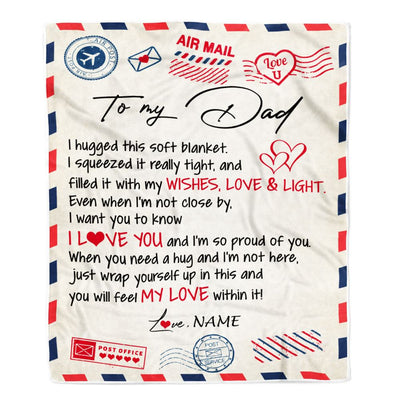 AIR POST
AIR MAIL
Love
U
To my Dad
I hugged this soft blanket.
I squeezed it really tight, and
filled it with my WISHES, LOVE & LIGHT.
Even when I'm not close by,
I want you to know
I L❤VE YOU and I'm so proud of you.
When you need a hug and I'm not here,
just wrap yourself up in this and
you will feel MY LOVE within it!
Love, NAME
POST OFFICE
POST
SERVICE